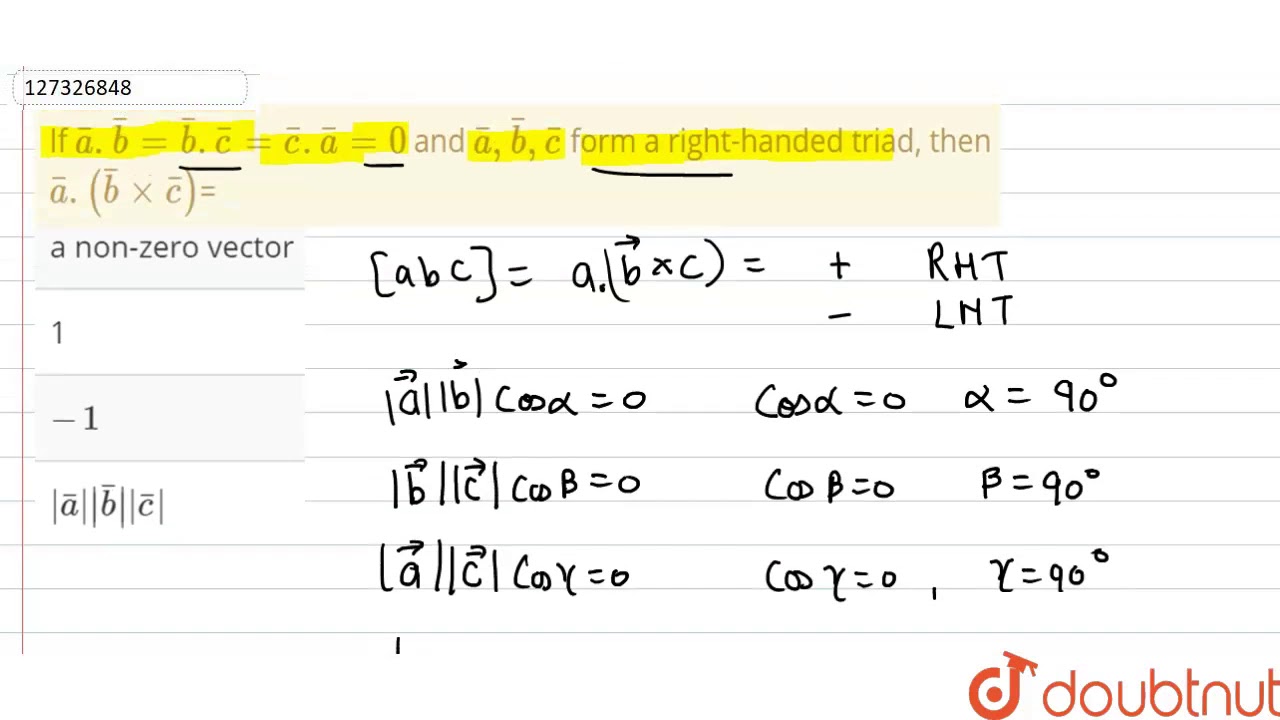 127326848
If a̅. b̅ = b̅. c̅ = c̅. a̅ = 0 and a̅, b̅, c̅ form a right-handed triad, then
a̅. (b̅ × c̅)=
a non-zero vector
[a b c] = a.(b⃗ × c) = + RHT
− LHT
1
|a⃗||b⃗| cos α = 0 cos α = 0 α = 90°
− 1
|b⃗||c⃗| cos β = 0 cos β = 0 β = 90°
|a̅||b̅||c̅|
|a⃗||c⃗| cos γ = 0 cos γ = 0 , γ = 90°
doubtnut